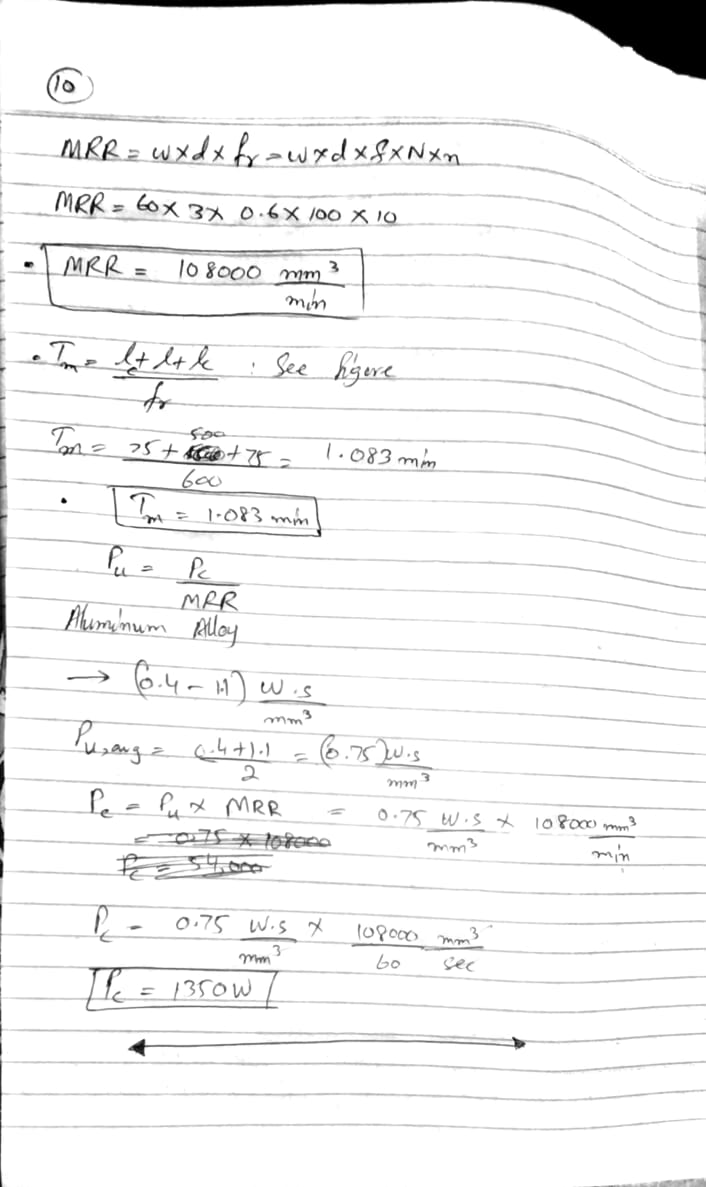 10
MRR = w x d x fr = w x d x f x N x n
MRR = 60 x 3 x 0.6 x 100 x 10
• MRR = 108000 mm³/min
• Tm = (lc + l + lc)/fr : See figure
Tm = (75 + 500 + 75)/600 = 1.083 min
• Tm = 1.083 min
Pu = Pc/MRR
Aluminum Alloy
→ (0.4 - 1.1) W.s/mm³
Pu,avg = (0.4 + 1.1)/2 = (0.75) W.s/mm³
Pc = Pu x MRR = 0.75 W.s/mm³ x 108000 mm³/min
= 0.75 x 108000
Pc = 54,000
Pc = 0.75 W.s/mm³ x 108000/60 mm³/sec
Pc = 1350 W